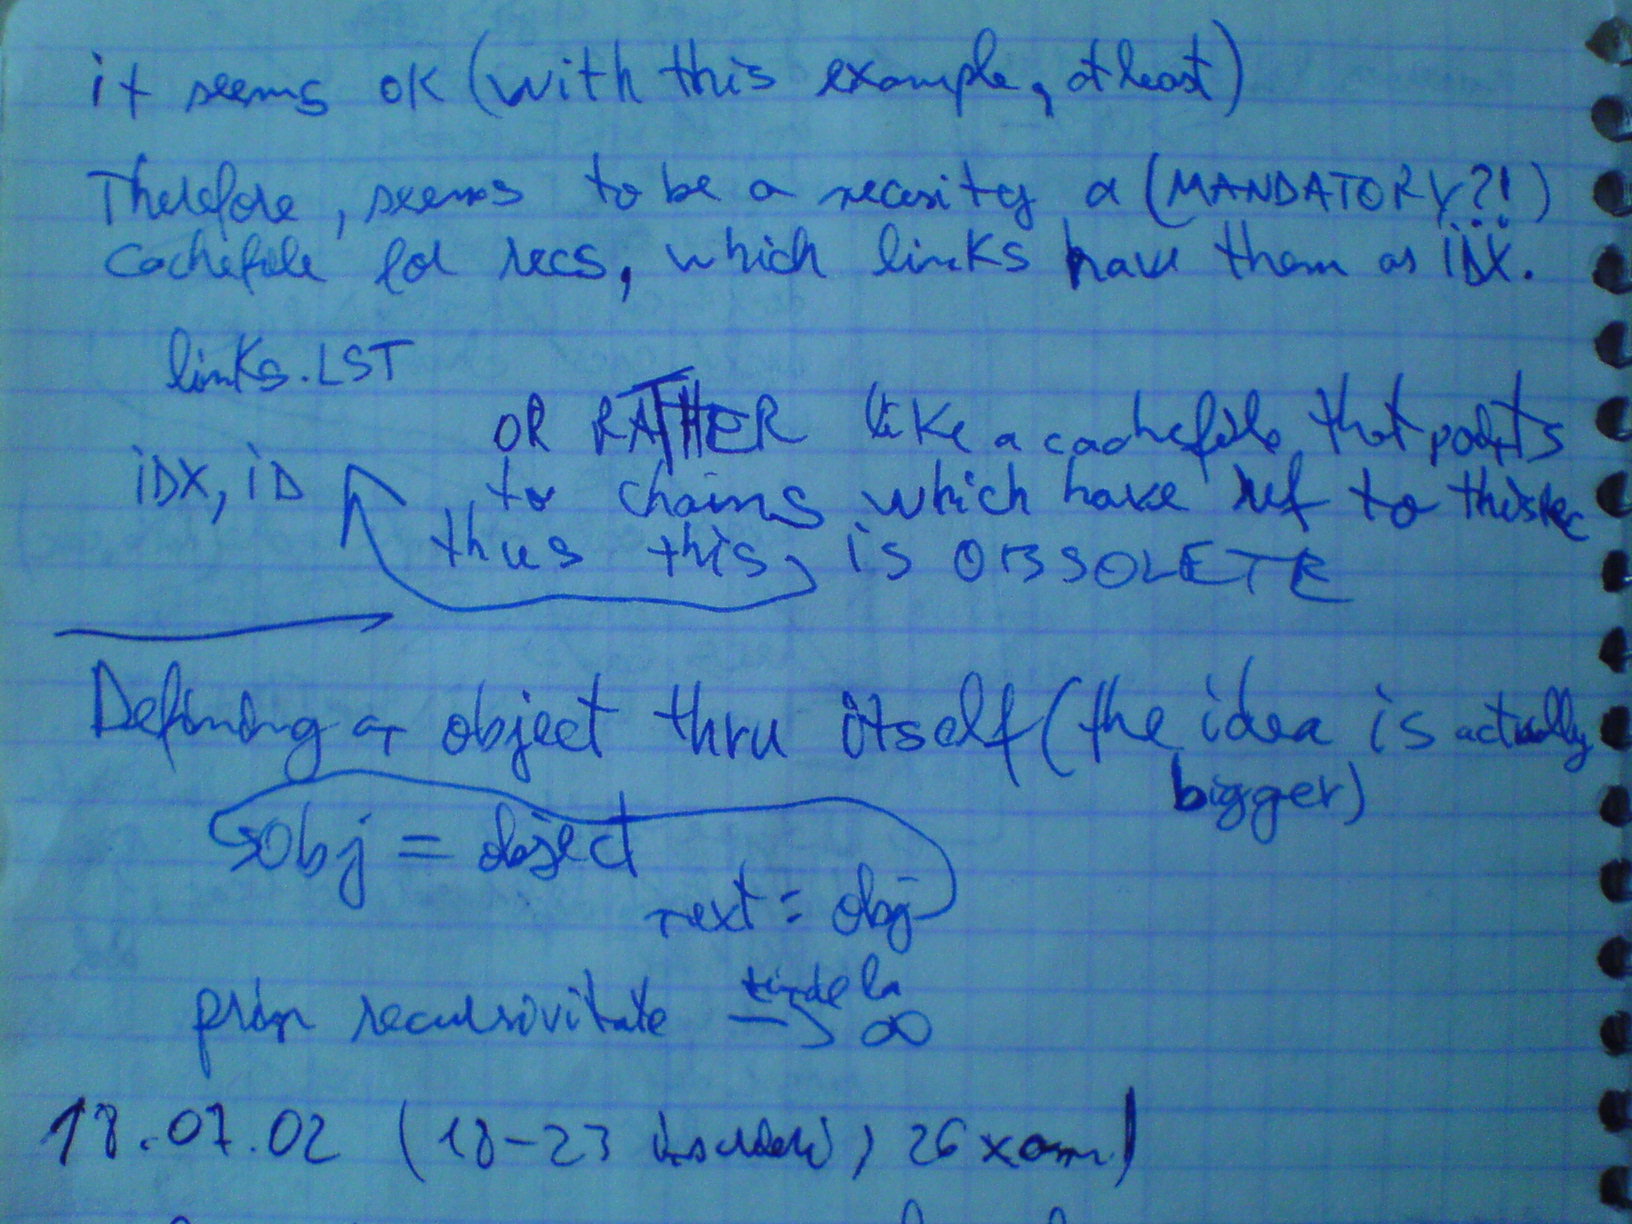 it seems ok (with this example, at least)
Therefore, seems to be a necesity a (MANDATORY?!)
cachefile for recs, which links have them as iDX.
links.LST
OR RATHER like a cachefile that points
iDX, iD
to chains which have ref to this rec
thus this, is OBSOLETE
Defining a object thru itself (the idea is actually
bigger)
obj = object
next = obj
prin recursivitate
tinde la
→ ∞
18.07.02 (18-23 , 26 xam)